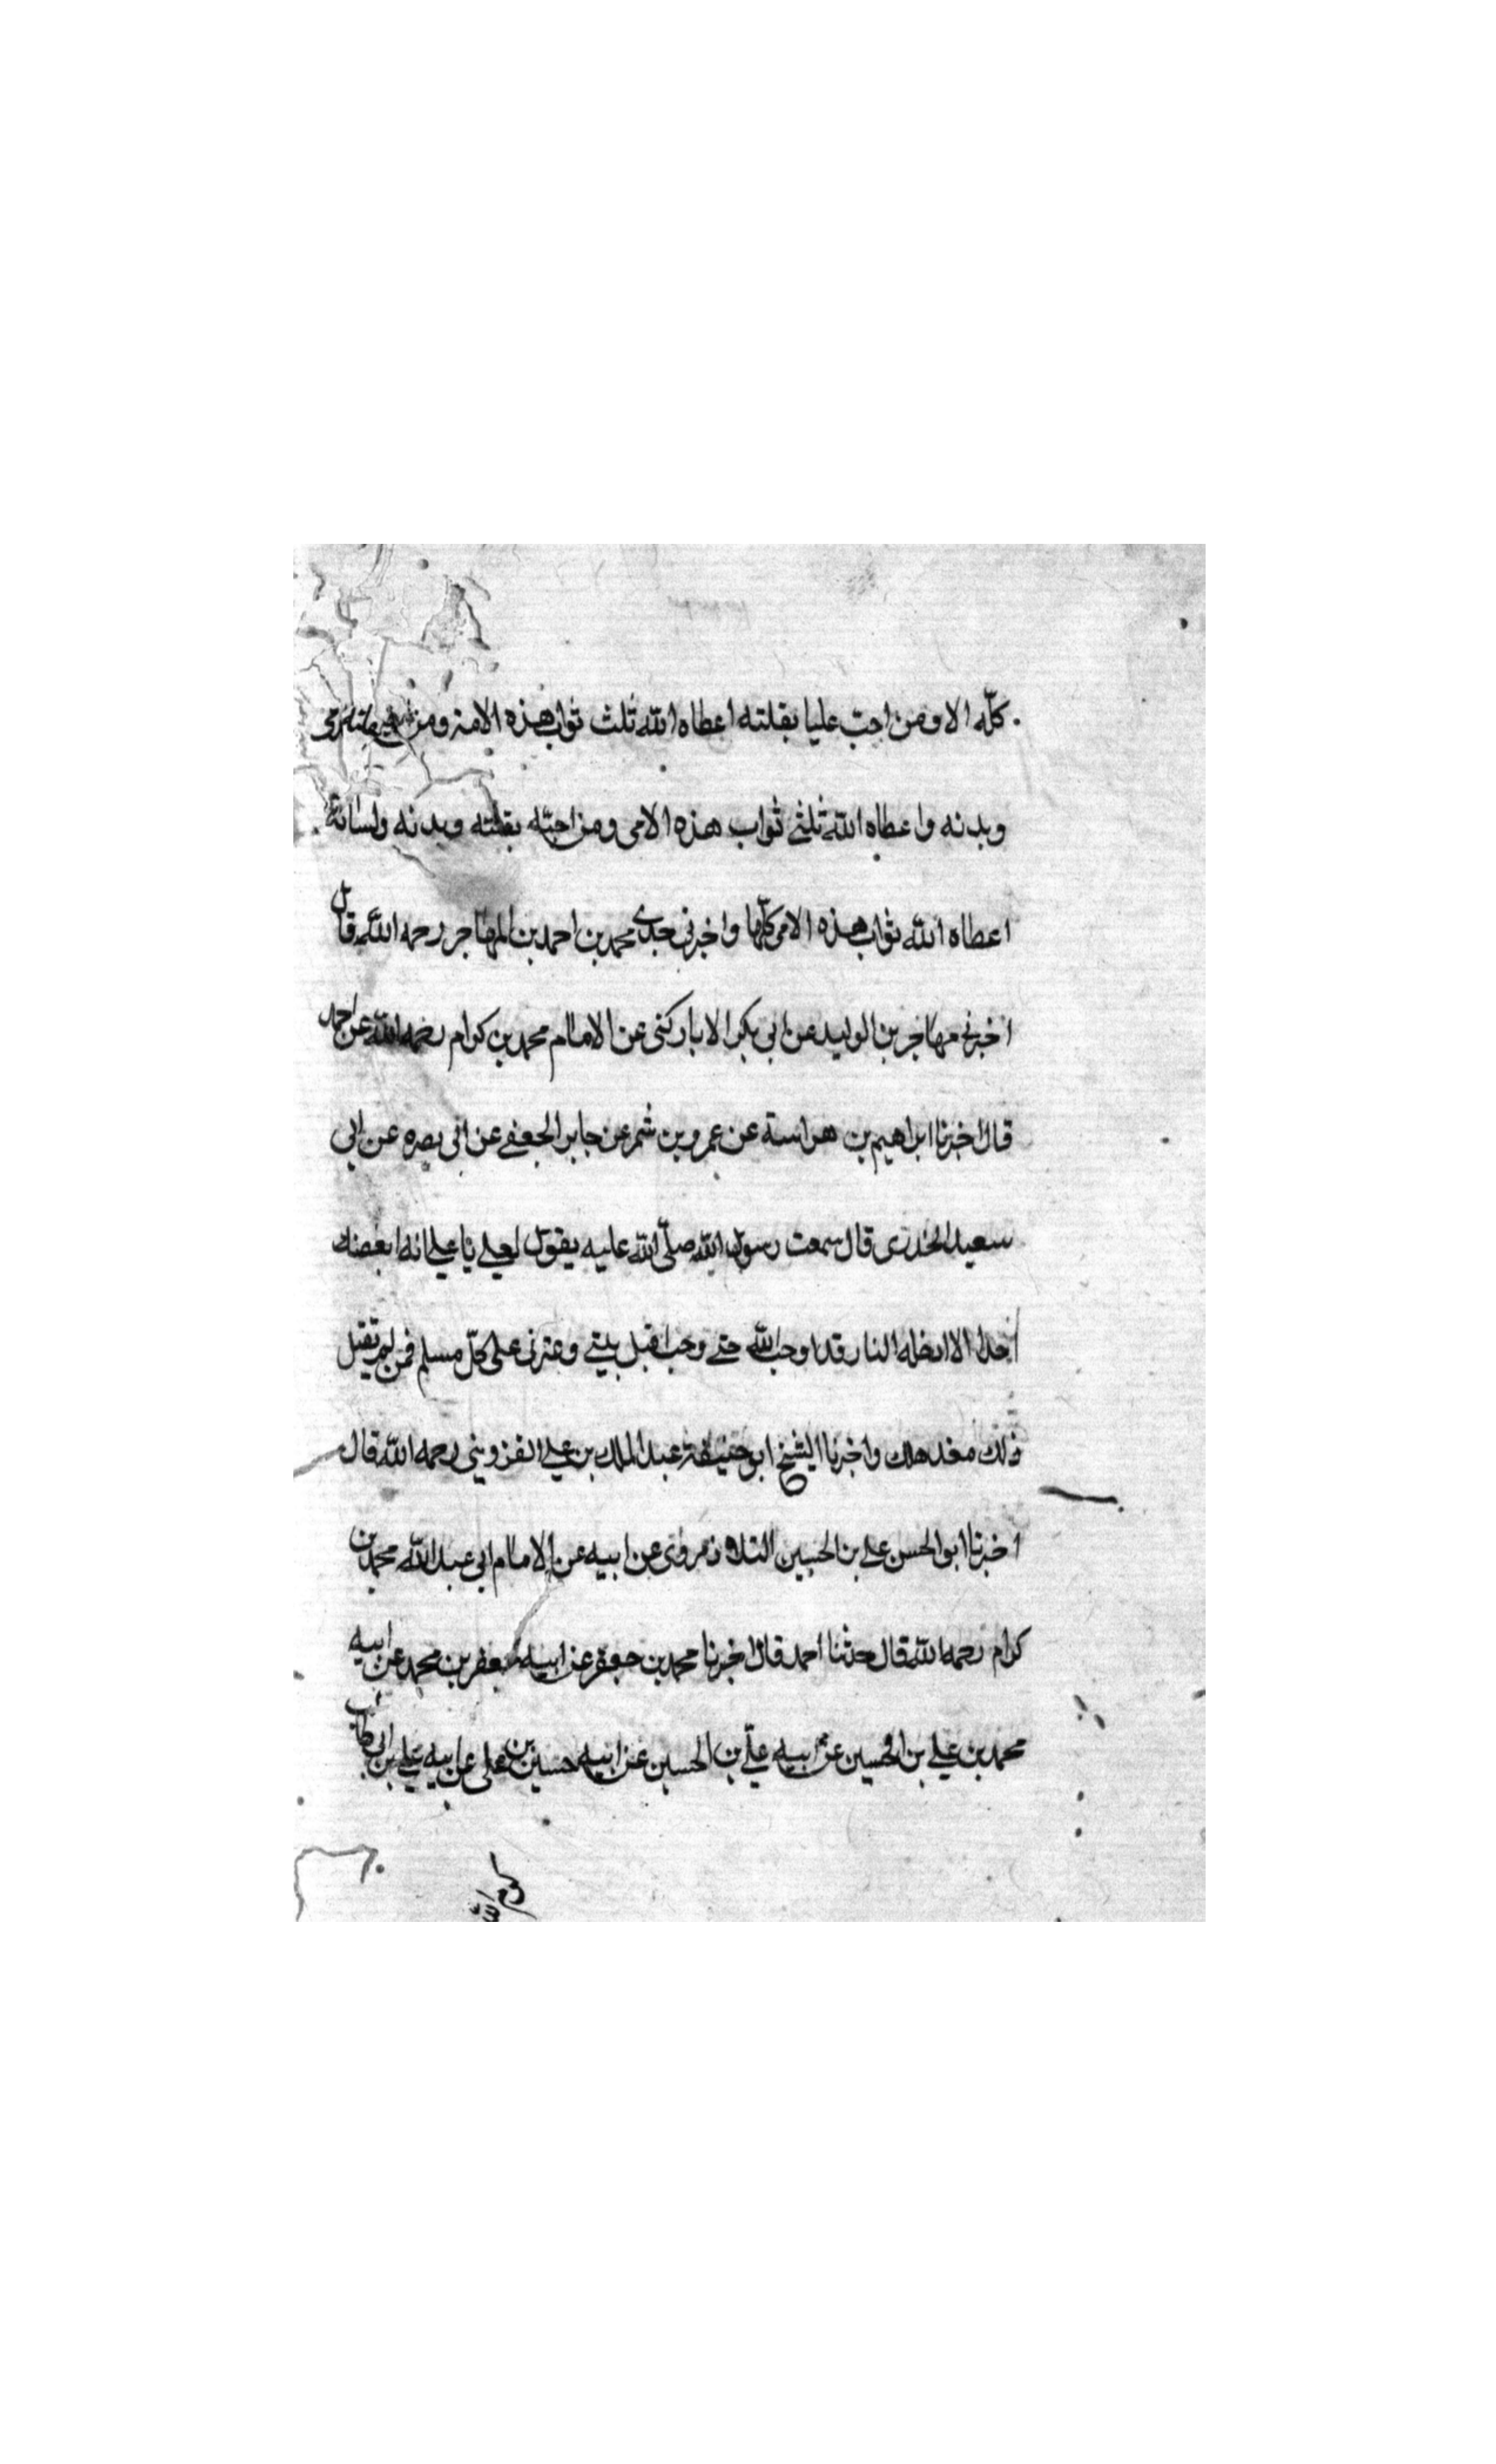 كلّه الا ومن احبّ عليا بقلبه اعطاه الله ثلث ثواب هذه الامة ومن
وبدنه واعطاه الله ثلثي ثواب هذه الامى ومن احبّه بقلبه وبدنه ولسانه
اعطاه الله ثواب هذه الامى كلّها واخبرني جدي محمد بن احمد بن المهاجر رحمه الله قال
اخبرني مهاجر بن الوليد عن ابي بكر الاباركثى عن الامام محمد بن كرام رحمه الله عن احمد
قال اخبرنا ابراهيم بن هراسة عن عمرو بن شمر عن جابر الجعفي عن ابي نصره عن ابي
سعيد الخدرى قال سمعت رسول الله صلّى الله عليه يقول لعلي يا علي انه ابغضك
احدا الا ادخله النار قد اوجب الله حتي وحب اهل بيتي وعترتى على كلّ مسلم فمن لم يقبل
ذلك فقد هلك واخبرنا الشيخ ابو حنيفة عبد الملك بن علي القزوينى رحمه الله قال
اخبرنا ابو الحسن علي بن الحسين عن ابيه عن الامام ابي عبد الله محمد بن
كرام رحمه الله قال حدثنا احمد قال اخبرنا محمد بن جعفر عن ابيه جعفر بن محمد عن ابيه
محمد بن علي بن الحسين عن ابيه علي بن الحسين عن ابيه حسين بن على عن ابيه علي بن ابي طالب